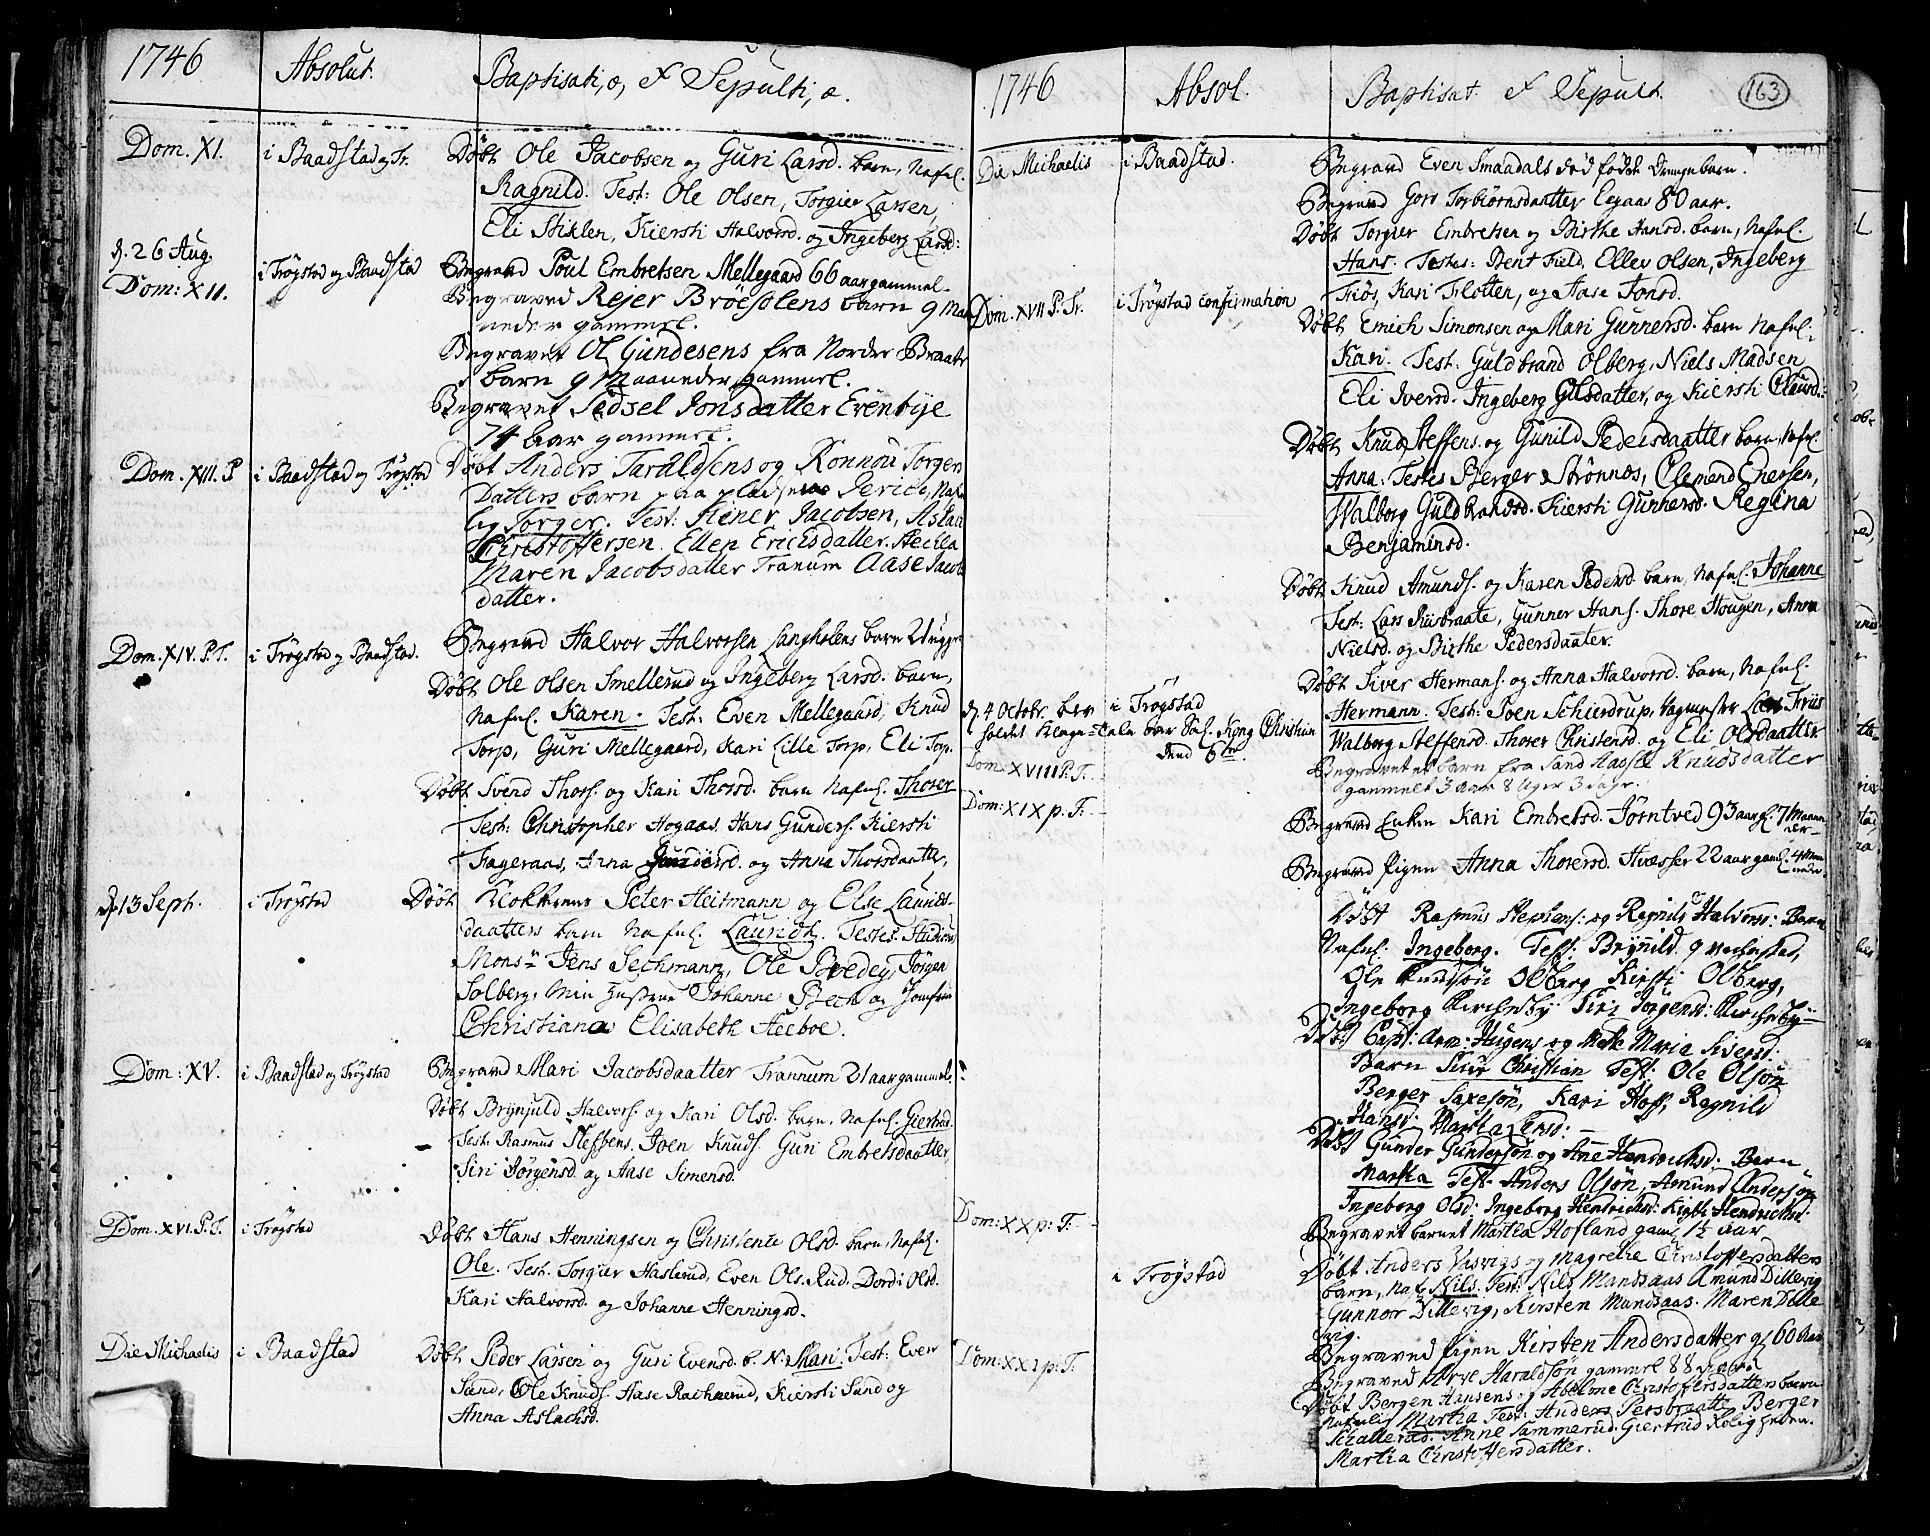 1746 Absolut. Baptisati, æ, & Sepulti, æ.
Dom. XI. i Baadstad og Tr. Døbt Ole Jacobsen og Guri Larsd. barn, Nafnl.
Ragnild. Test: Ole Olsen, Torgier Larsen,
Eli Stiklen, Kiersti Halvorsd. og Ingeberg Larsd:
d. 26 Aug. i Trøgstad og Baadstad Begravd Poul Embretsen Mellegaard 66 aar gammel.
Dom: XII. Begraved Rejer Brøeskolens barn 9 Maa
neder gammel.
Begravet Ol Gundesens fra Nordre Braate
barn 9 Maaneder gammel.
Begravet Sidsel Jonsdatter Evenbye
74 Aar gammel.
Dom. XIII. P i Baadstad og Trøgstad Døbt Anders Taraldsens og Ronnou Torgers
Datters barn paa pladsen Jerico, Nafn
lig Torger. Test: Hener Jacobsen, Aslac
Christoffersen. Ellen Ericksdatter. Heckla
Maren Jacobsdatter Tranum Aase Jacobs
datter.
Dom. XIV. P.T. i Trøgstad og Baadstad. Begravd Halvor Halvorsen Langholens barn 2 Ugger
Døbt Ole Olsen Smellerud og Ingeberg Larsd. barn,
Nafnl. Karen. Test: Even Mellegaard, Knud
Torp, Guri Mellegaard, Kari Lille Torp, Eli Torp.
Døbt Svend Thors. og Kari Thorsd. barn Nafnl. Thorer
Test: Christopher Hogaas Hans Gunders. Kiersti
Fageraas, Anna Gundersd. og Anna Thorsdaatter,
d. 13 Sept. i Trøgstad Døbt Klokkerens Peter Heitmann og Else Laurids-
daatters barn Nafnl. Lauridtz. Testes: Studios
Monsr. Jens Sechmann, Ole Bredey, Jørgen
Solberg, Min Hustrue Johanne Beck og Jomfru
Christiana Elisabeth Heeboe.
Dom: XV. i Baadstad og Trøgstad Begravd Mari Jacobsdaatter Trannum 21 aar gammel.
Døbt Brynjuld Halvors. og Kari Olsd. barn, Nafnl. Giertrud.
Test: Rasmus Steffens. Joen Knuds. Guri Embretsdaatter,
Siri Jørgensd. og Aase Simensd.
Dom. XVI. P.T. i Trøgstad Døbt Hans Henningsen og Christente Olsd. barn, Nafnl.
Ole. Test: Torgier Haslerud, Even Ols. Rud. Dordi Olsd.
Kari Halvorsd. og Johanne Henningsd.
Die Michaelis i Baadstad Døbt Peder Larsen og Guri Evensd. b. N. Mari. Test: Even
Sand, Ole Knuds. Aase Racknerud, Kiersti Sand og
Anna Aslachsd.
1746 Absol. Baptisat & Sepult. 163
Die Michaelis i Baadstad. Begravd Even Smaadals død født Drengebarn.
Begravd Goro Torbiørnsdaatter Legaas 80 aar.
Døbt Torgier Embretsen og Birthe Hansd. barn, Nafnl.
Hans. Testes: Bent Field, Ellev Olsen, Ingeberg
Fiøs, Kari Flotten, og Aase Jonsd.
Dom. XVII P. Tr. i Trøgstad Confirmation Døbt Emich Simonsen og Mari Gunnersd. barn Nafnl.
Kari. Test: Guldbrand Olberg, Niels Madsen,
Eli Iversd. Ingeberg Gilsdatter, og Kiersti Clausd.:
Døbt Knud Steffens. og Gunild Pedersdaatter barn, Nafnl.
Anna: Testes Berger Strønnæs, Clemend Enersen,
Walborg Guldbrandsd. Kiersti Gunnersd. Regina
Benjaminsd.
Døbt Knud Amunds. og Karen Pedersd. barn, Nafnl. Johanne
Test: Lars Riisbraate, Gunner Hans. Thore Hougen, Anna
Nielsd. og Birthe Pedersdaatter.
Døbt Siver Hermans. og Anna Halvorsd. barn, Nafnl.
d. 4 Octobr. blev i Trøgstad Hermann. Test: Soen Schierdrup, Vagmester Friis
holdet Klage-Tale over Sal. Kong Christian Walborg Steffensd. Thorer Christensd. og Eli Olsdaatter
dend 6te.
Dom: XVIII P.T. Begravet et barn fra Sand Aasle Knudsdatter
gammel 3 aar 8 Uger 3 dage.
Dom: XIX p. T. Begravd Enken Kari Embretsd. Jørntved 93 aar g. 7 Maane
der
Begravd Pigen Anna Thorersd. Hvæsser 22 aar gaml. 4 Maa
neder
Døbt Rasmus Stephens: og Ragnild Halvorsd: Barn
Nafnl. Ingeborg. Test: Brynild
Ole Knudsøn Olberg Kirsti Olberg,
Ingeborg Kirchebÿ Siri Jørgensd: Kirchebÿ
Døbt Cap: Arm: Hugens og Mette Maria Siversd:
Barn Siur Christian Test: Ole Olsøn
Berger Saxesøn, Kari Hoff, Ragnild
Hansd: Martha Ensd:
Døbt Gunder Gundersøn og Ane Hendrichsd: Barn
Martha Test: Anders Olsøn, Amund Andersøn
Ingeborg Olsd: Ingeborg Hendrichsd: Kirsti Hendrichsd:
Dom: XX p: T: Begravet barnet Martha Hofland gaml 1½ aar
i Trøgstad Døbt Anders Vasvigs og Magrethe Christoffersdatters
barn, Naf Nils. Test: Nils Mandsaas Amund Dillevig
Gunnor Dillevig, Kirsten Mundsaas. Maren Dille
vig.
Dom: XXI p: T: Begraved Pigen Kirsten Andersdatter gl 60 Aar
Begraved Arve Haraldsøn gammel 88
Døbt Bergen Hansens og Abelone Christoffersdatters barn
Nafnlig Martha Test: Anders Persbraatte Berger
Schallerud. Anne Sammerud. Giertrud Roligheden.
Martha Christoffersdatter.